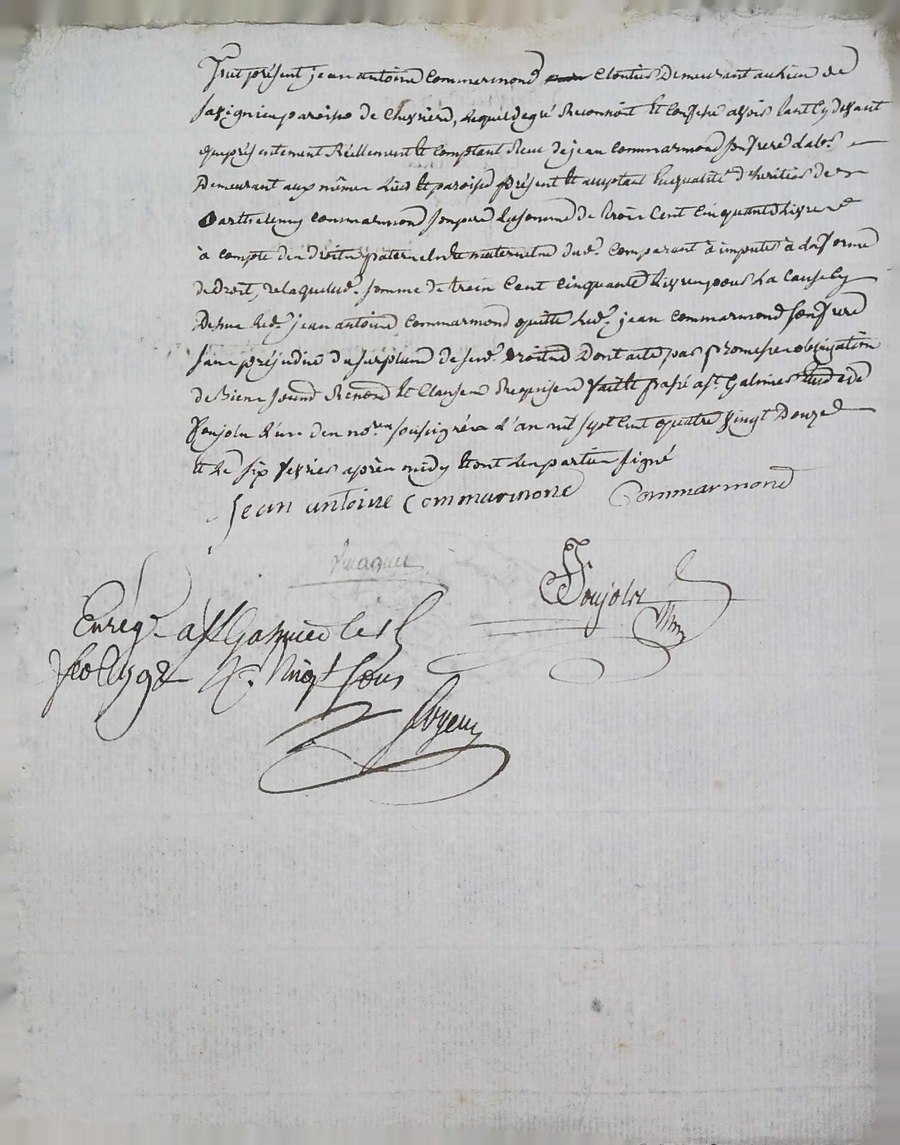 fut présent jean antoine Commarmond Cloutier Demeurant au lieu de
paroisse de Chevriere, lequel de gré Reconnoit et Confesse avoir tant cy devant
que présentement Réellement et Comptant Receu de jean Commarmond son frere labr.
Demeurant aux mêmes lieu et paroisse présent et acceptant en qualité d'heritier de
Barthelemy Commarmond son pere la somme de trois Cent Cinquante Livres
à compte des droits paternels et maternels dud. Comparant à imputer à la forme
de Droit, de laquelle d. somme de trois Cent Cinquante Livres pour la Cause cy
Dessus led. jean antoine Commarmond quitte led. jean Commarmond son frere
sans préjudice du surplus de sesd. Droits Dont acte par promesse obligation
de Biens soumis Renon. et Clauses Requises fait et passé a St. Galmier Etude de
Ponjols L'un des no.res soussignés L'an mil sept Cent quatre Vingt Douze
et le six fevrier après midy et ont les parties signé
Jean antoine Commarmond Commarmond
Ponjols
Enrég. a St Galmier le
Vingt sous